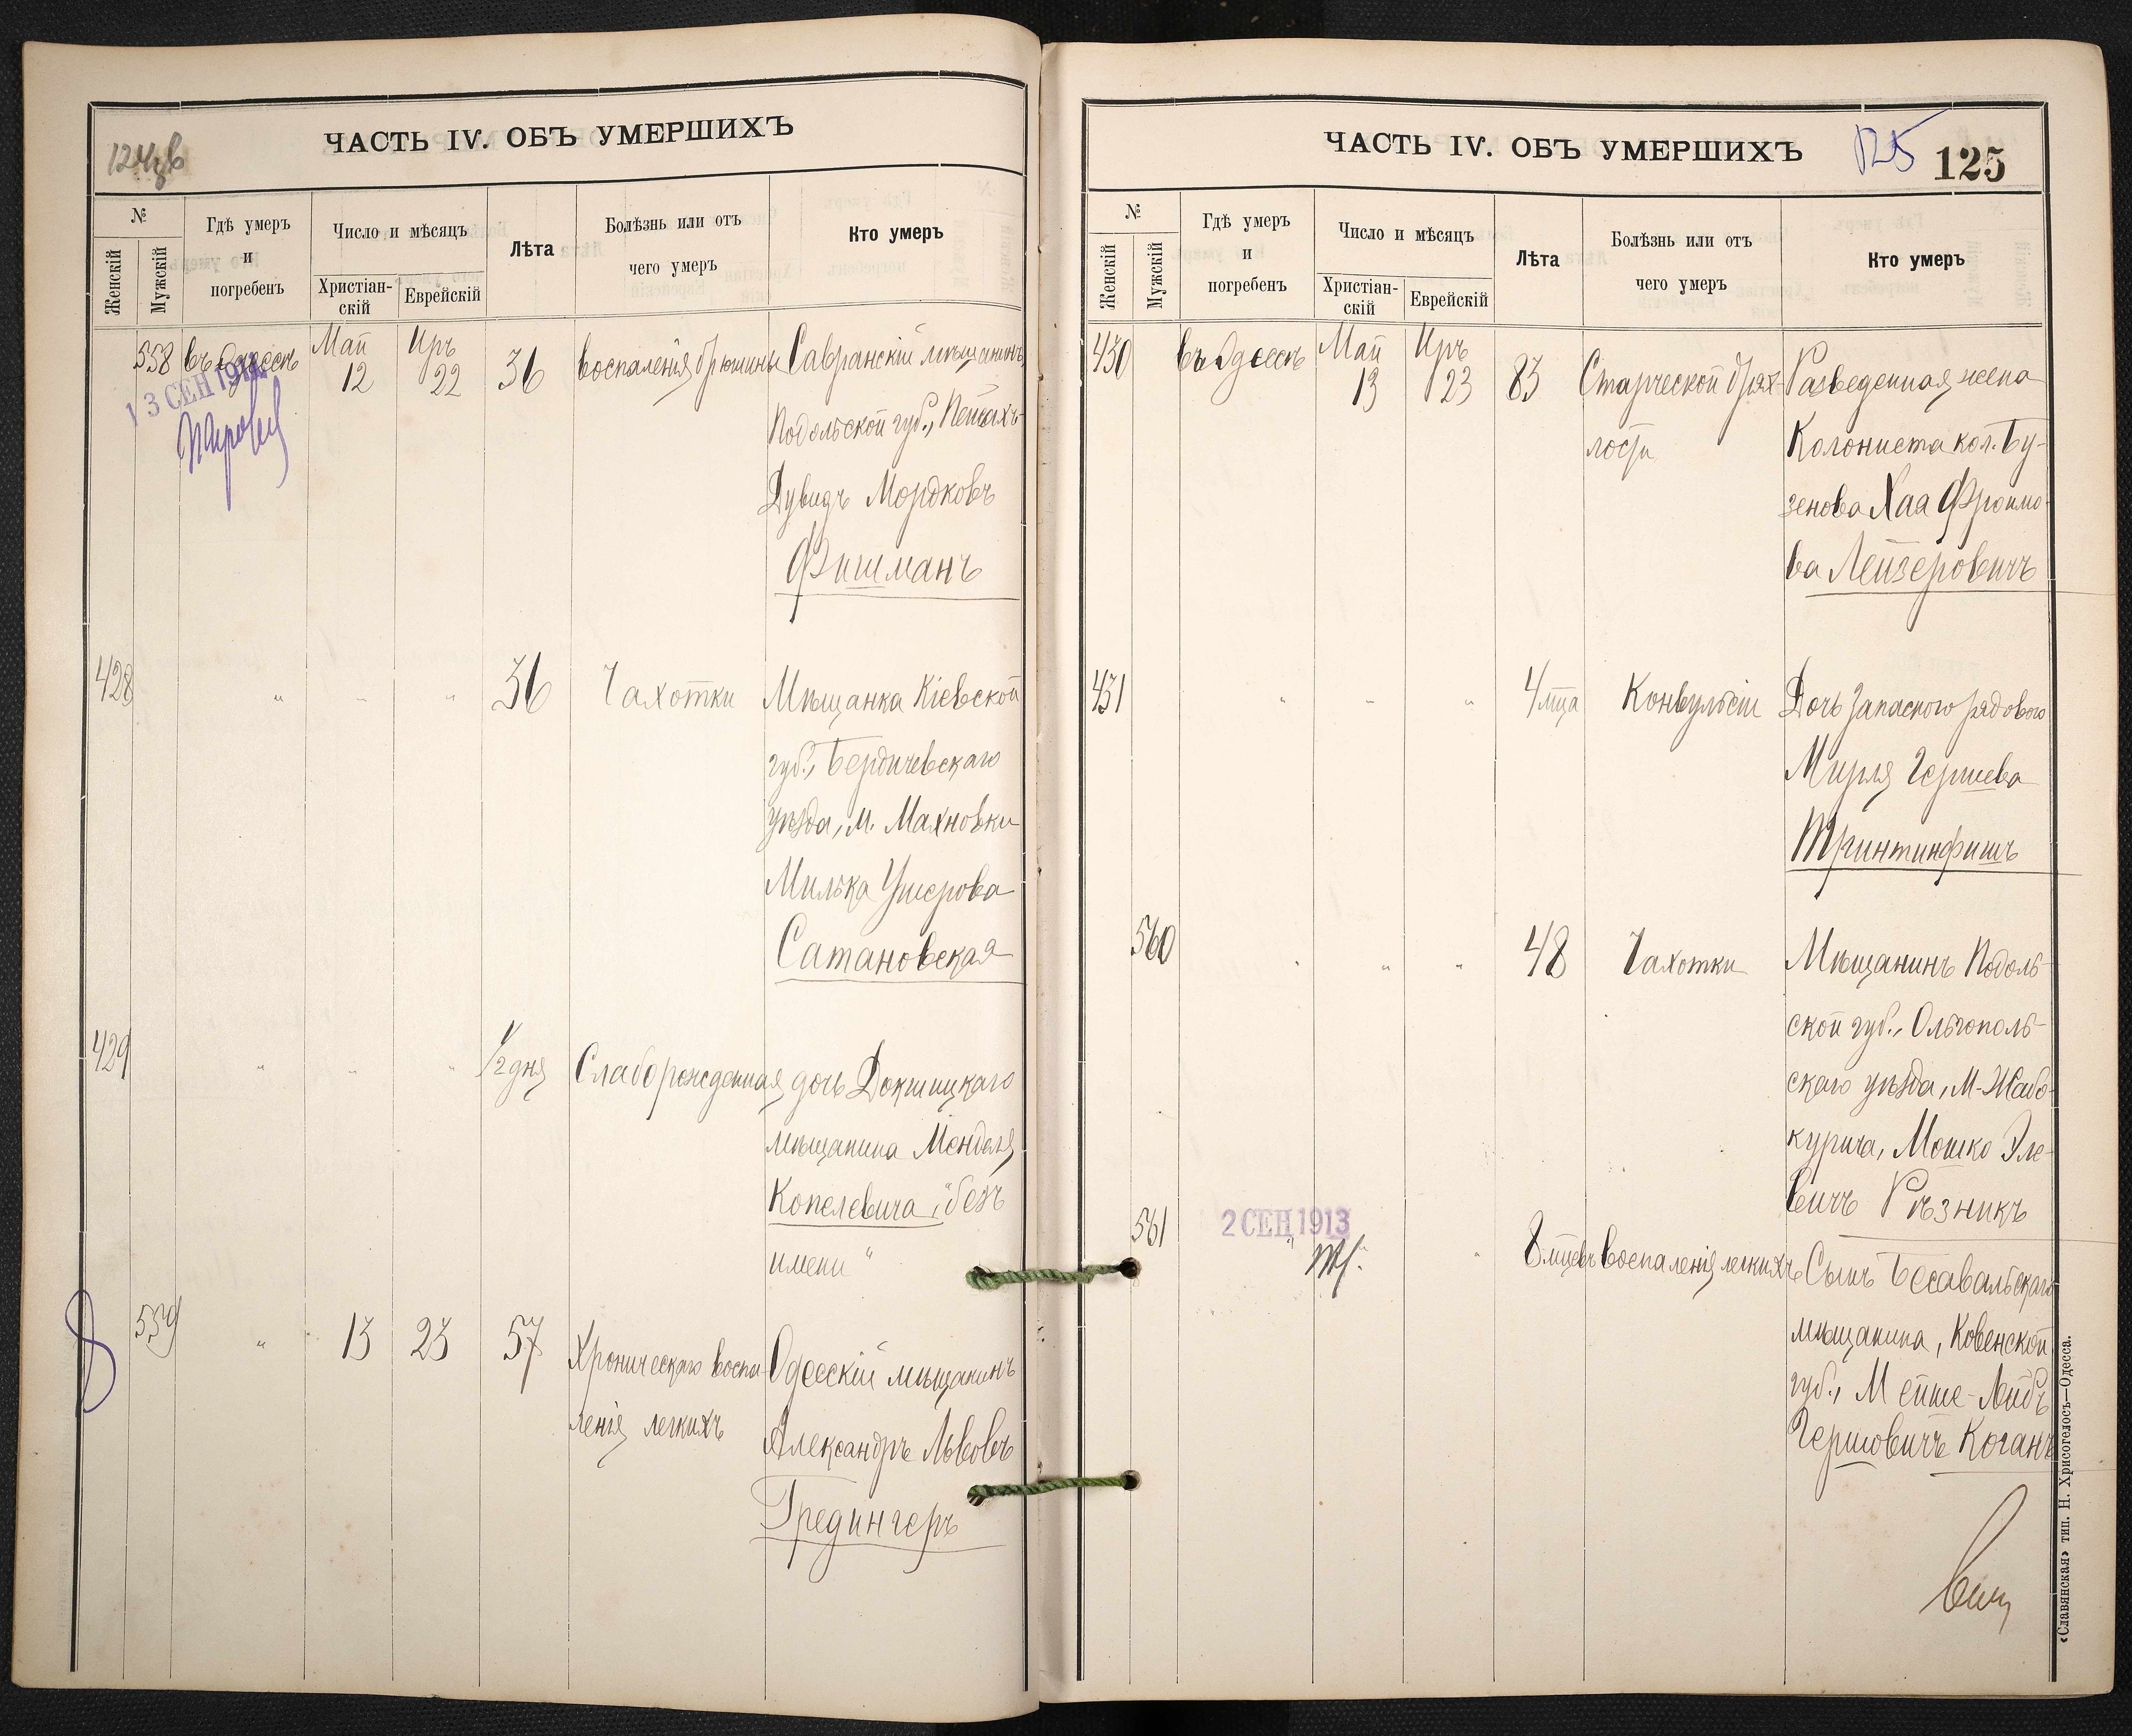 ЧАСТЬ IV. ОБЪ УМЕРШИХЪ
№
Женскій
Мужскій
Гдѣ умеръ
и
погребенъ
Число и мѣсяцъ
Христіан-
скій
Еврейскій
Лѣта
Болѣзнь или отъ
чего умеръ
Кто умеръ
558 въ Одессѣ Май 12 Иръ 22 36 воспаленія брюшины Савранскій мѣщанинъ,
13 СЕН 191
Подольской губ., Пейсахъ-
Дувидъ Мордковъ
Фишманъ
428 " " " 36 Чахотки Мѣщанка Кіевской
губ., Бердичевскаго
уѣзда, м. Махновки
Милька Ушерова
Сатановская
429 " " " 1/2 дня Слаборожденная дочь Докшицкаго
мѣщанина Менделя
Копелевича, "безъ
имени"
559 " 13 23 57 Хроническаго воспа- Одесскій мѣщанинъ
ленія легкихъ Александръ Львовъ
Гредингеръ
ЧАСТЬ IV. ОБЪ УМЕРШИХЪ
125 125
№
Женскій
Мужскій
Гдѣ умеръ
и
погребенъ
Число и мѣсяцъ
Христіан-
скій
Еврейскій
Лѣта
Болѣзнь или отъ
чего умеръ
Кто умеръ
430 въ Одессѣ Май 13 Иръ 23 83 Старческой дрях- Разведенная жена
лости Колониста кол. Бу-
зенова Хая Фроимо-
ва Лейзеровичъ
431 " " " 4 мца Конвульсіи Дочь запасного рядового
Мирля Гершева
Тринтинфишъ
560 " " " 48 Чахотки Мѣщанинъ Подоль-
ской губ., Ольгополь-
скаго уѣзда, м. Жабо-
курича, Мошко Эле-
вичъ Рѣзникъ
561 " " " 8 мцевъ воспаленія легкихъ Сынъ
2 СЕН 1913
мѣщанина, Ковенской
губ., Мейше-Лейбъ
Гершовичъ Коганъ
«Славянская» тип. Н. Хрисогелосъ—Одесса.